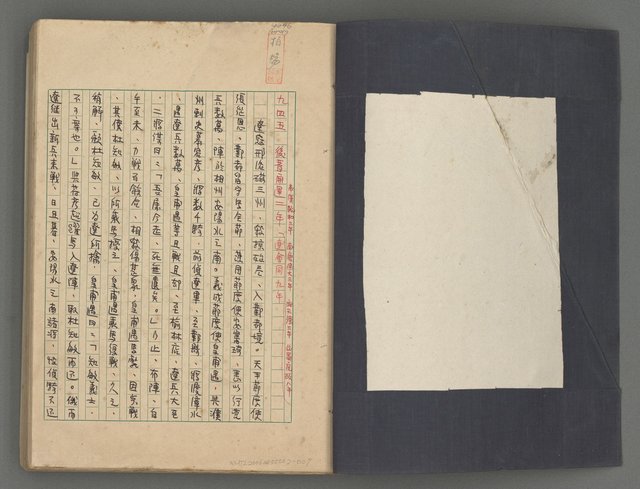 九四五 後晉開運二年「遼會同九年
遼寇邢洺磁三州、殺掠殆盡、入鄴都境。天平節度使
張從恩、鄴都留守馬全節、護國節度使安審琦、悉以行營
兵數萬、陳於相州安陽水之南。義成節度使皇甫遇、與濮
州刺史慕容彥、將數千騎、前偵遼軍、至鄴縣、將渡漳水
、遇遼兵數萬、皇甫遇等且戰且却、至榆林店、遼兵大至
、二將謀曰、「吾屬今走、死無遺矣。」乃止、布陣、自
午至未、力戰百餘合、相殺傷甚衆、皇甫遇馬斃、因步戰
、其僕杜知敏、以所乘馬授之、皇甫遇乘馬復戰、久之、
稍解、顧杜知敏、已為遼所擒、皇甫遇曰、「知敏義士、
不可棄也。」與慕容彥超躍馬入遼陣、取杜知敏而还。俄而
遼繼出新兵來戰、日且暮、安陽水之南諸將、怪覘騎不还